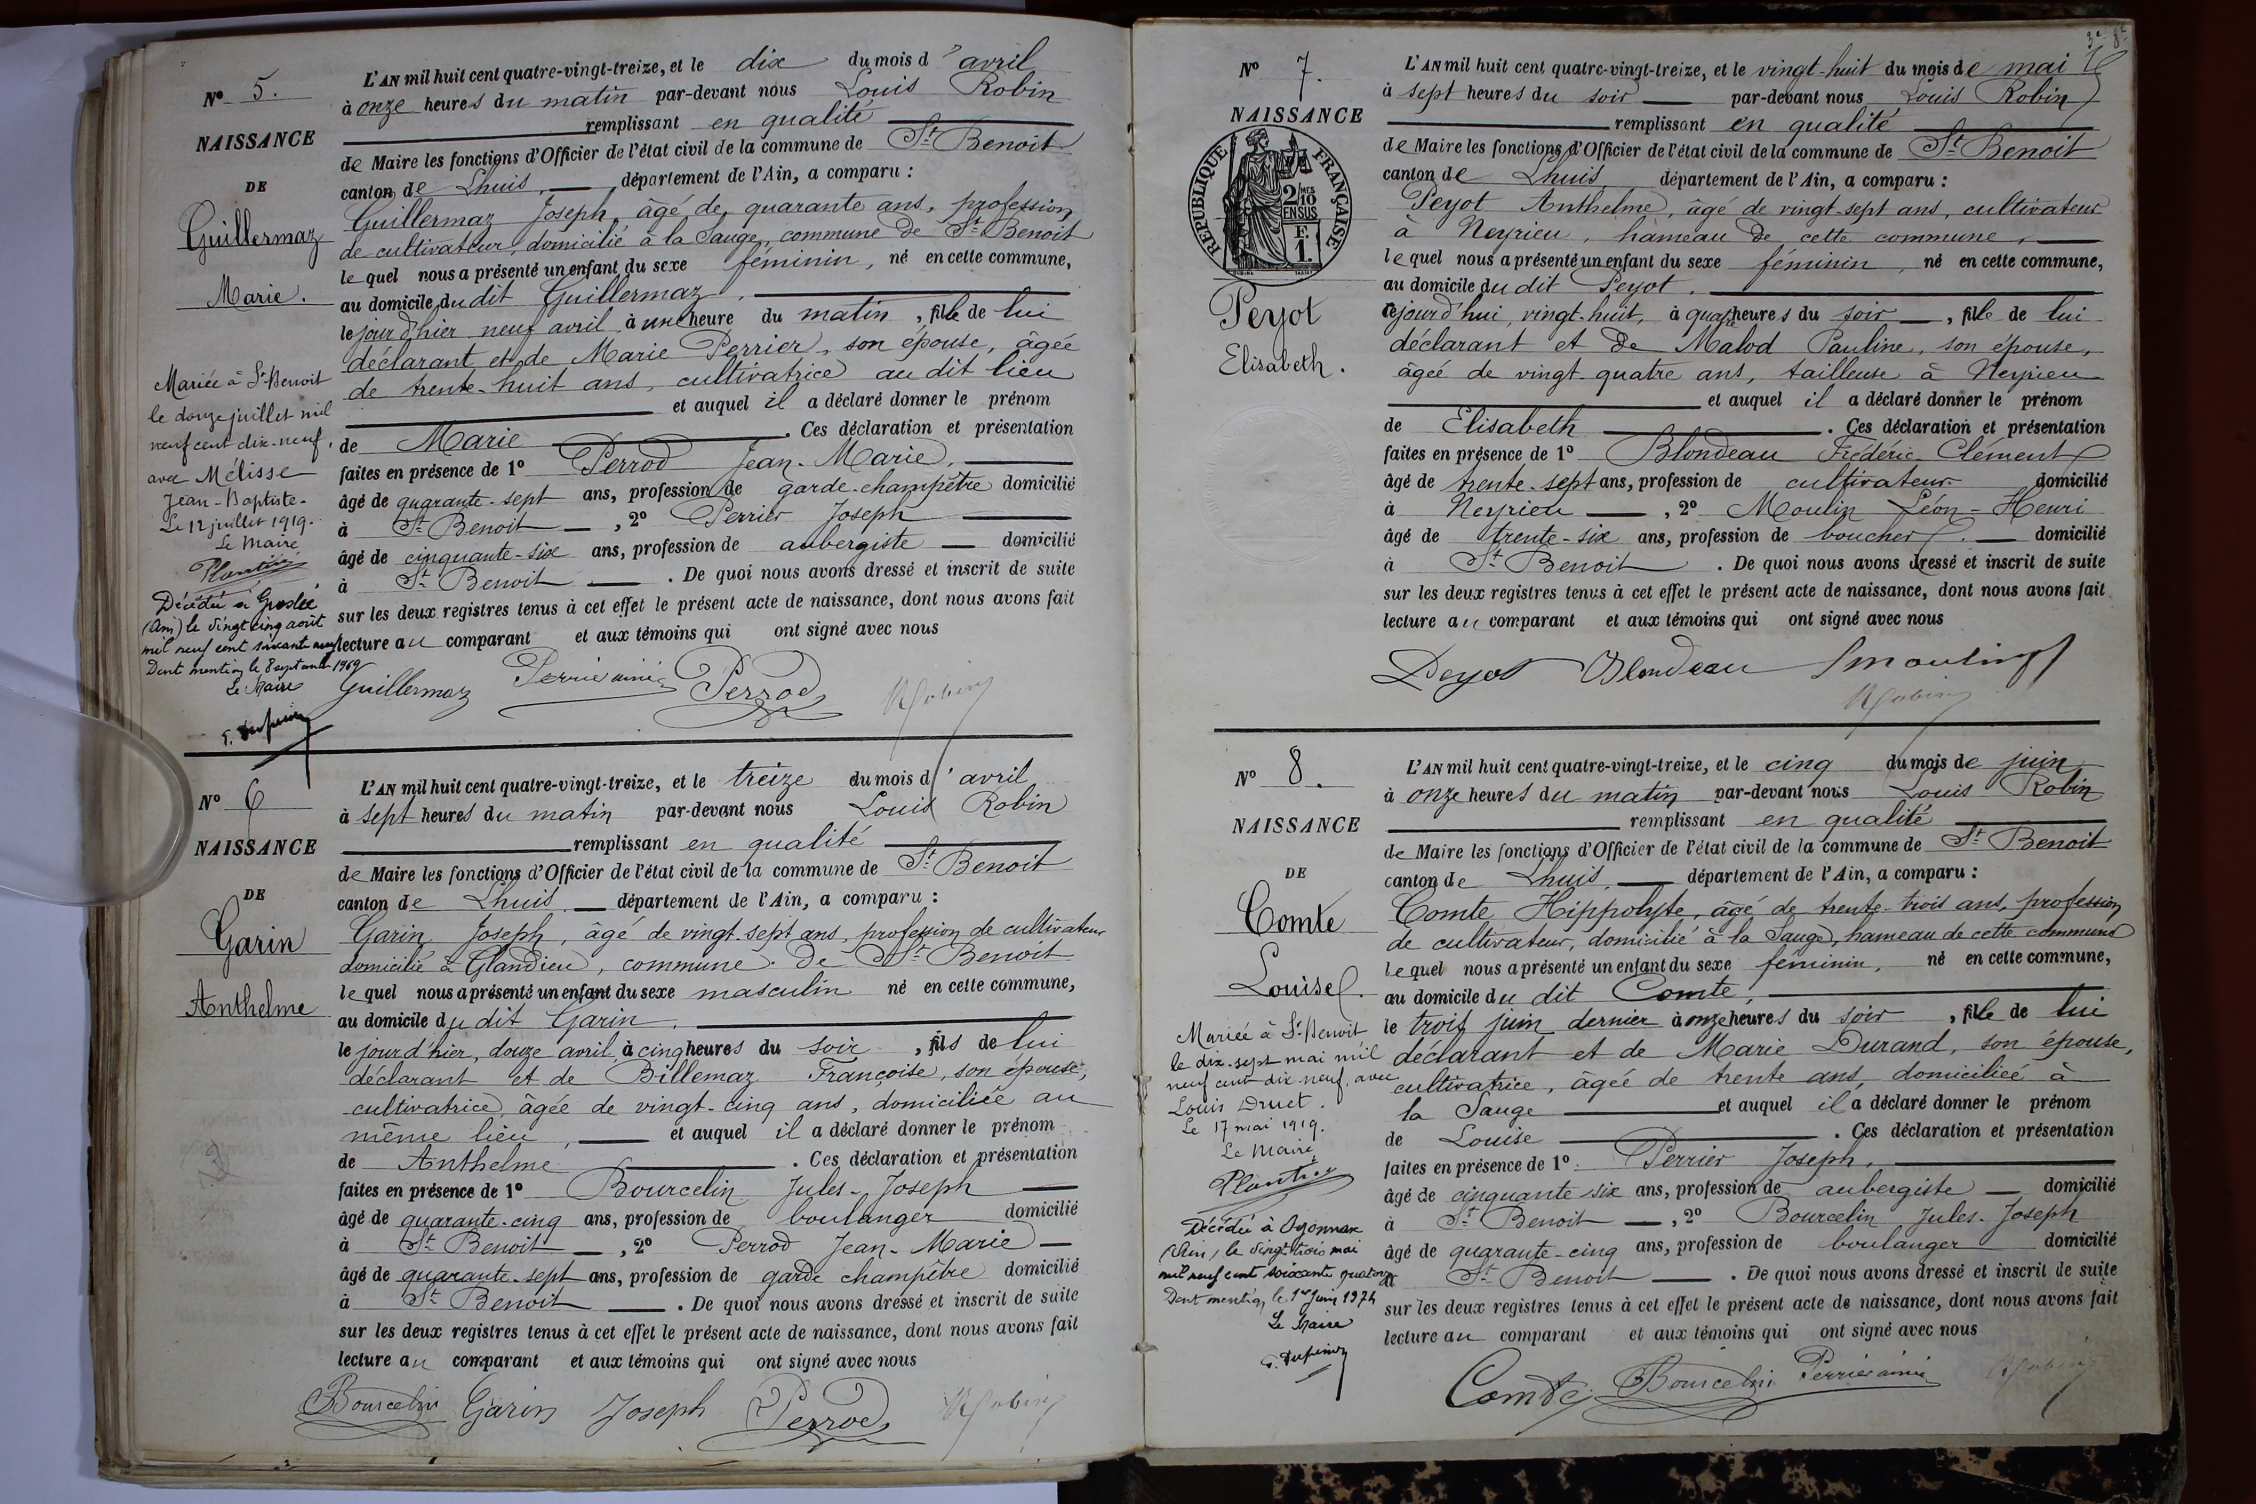 N° 5.
NAISSANCE
DE
Guillermaz
Marie.
L'AN mil huit cent quatre-vingt-treize, et le dix du mois d'avril
à onze heures du matin par-devant nous Louis Robin
remplissant en qualité
de Maire les fonctions d'Officier de l'état civil de la commune de St Benoit
canton de Lhuis, département de l'Ain, a comparu :
Guillermaz Joseph, âgé de quarante ans, profession
de cultivateur, domicilié à la Sauge, commune de St Benoit
lequel nous a présenté un enfant du sexe féminin, né en cette commune,
au domicile du dit Guillermaz,
le jour d'hier neuf avril à une heure du matin, fille de lui
déclarant et de Marie Perrier, son épouse, âgée
de trente-huit ans, cultivatrice au dit lieu
et auquel il a déclaré donner le prénom
de Marie. Ces déclaration et présentation
faites en présence de 1° Perrod Jean-Marie,
âgé de quarante-sept ans, profession de garde-champêtre domicilié
à St Benoit, 2° Perrier Joseph
âgé de cinquante-six ans, profession de aubergiste domicilié
à St Benoit. De quoi nous avons dressé et inscrit de suite
sur les deux registres tenus à cet effet le présent acte de naissance, dont nous avons fait
lecture au comparant et aux témoins qui ont signé avec nous
Guillermaz Perrier ainé Perrod Robin
Mariée à St Benoit
le douze juillet mil
neuf cent dix-neuf,
avec Mélisse
Jean-Baptiste-
Le 12 juillet 1919.
Le Maire
Plantier
Décédée à Groslée
(Ain) le vingt cinq août
mil neuf cent soixante neuf
Dont mention le 8 septembre 1969
Le Maire
N° 6
NAISSANCE
DE
Garin
Anthelme
L'AN mil huit cent quatre-vingt-treize, et le treize du mois d'avril
à sept heures du matin par-devant nous Louis Robin
remplissant en qualité
de Maire les fonctions d'Officier de l'état civil de la commune de St Benoit
canton de Lhuis, département de l'Ain, a comparu :
Garin Joseph, âgé de vingt-sept ans, profession de cultivateur
domicilié à Glandieu, commune de St Benoit
lequel nous a présenté un enfant du sexe masculin né en cette commune,
au domicile du dit Garin,
le jour d'hier, douze avril, à cinq heures du soir, fils de lui
déclarant et de Billemaz Françoise, son épouse,
cultivatrice, âgée de vingt-cinq ans, domiciliée au
même lieu, et auquel il a déclaré donner le prénom
de Anthelme. Ces déclaration et présentation
faites en présence de 1° Bourcelin Jules-Joseph
âgé de quarante-cinq ans, profession de boulanger domicilié
à St Benoit, 2° Perrod Jean-Marie
âgé de quarante-sept ans, profession de garde champêtre domicilié
à St Benoit. De quoi nous avons dressé et inscrit de suite
sur les deux registres tenus à cet effet le présent acte de naissance, dont nous avons fait
lecture au comparant et aux témoins qui ont signé avec nous
Bourcelin Garin Joseph Perrod Robin
3e 8e
N° 7.
NAISSANCE
RÉPUBLIQUE FRANÇAISE
2/10 MES
EN SUS
F.
1.
Peyot
Elisabeth.
L'AN mil huit cent quatre-vingt-treize, et le vingt-huit du mois de mai
à sept heures du soir par-devant nous Louis Robin
remplissant en qualité
de Maire les fonctions d'Officier de l'état civil de la commune de St Benoit
canton de Lhuis département de l'Ain, a comparu :
Peyot Anthelme, âgé de vingt-sept ans, cultivateur
à Neyrieu, hameau de cette commune,
lequel nous a présenté un enfant du sexe féminin, né en cette commune,
au domicile du dit Peyot,
cejourd'hui, vingt-huit, à quatre heures du soir, fille de lui
déclarant et de Malod Pauline, son épouse,
âgée de vingt-quatre ans, tailleuse à Neyrieu
et auquel il a déclaré donner le prénom
de Elisabeth. Ces déclaration et présentation
faites en présence de 1° Blondeau Frédéric-Clément
âgé de trente-sept ans, profession de cultivateur domicilié
à Neyrieu, 2° Moulin Léon-Henri
âgé de trente-six ans, profession de boucher. domicilié
à St Benoit. De quoi nous avons dressé et inscrit de suite
sur les deux registres tenus à cet effet le présent acte de naissance, dont nous avons fait
lecture au comparant et aux témoins qui ont signé avec nous
Peyot Blondeau Moulin
Robin
N° 8.
NAISSANCE
DE
Comte
Louise.
L'AN mil huit cent quatre-vingt-treize, et le cinq du mois de juin
à onze heures du matin par-devant nous Louis Robin
remplissant en qualité
de Maire les fonctions d'Officier de l'état civil de la commune de St Benoit
canton de Lhuis, département de l'Ain, a comparu :
Comte Hippolyte, âgé de trente-trois ans, profession
de cultivateur, domicilié à la Sauge, hameau de cette commune
lequel nous a présenté un enfant du sexe féminin, né en cette commune,
au domicile du dit Comte,
le trois juin dernier à onze heures du soir, fille de lui
déclarant et de Marie Durand, son épouse,
cultivatrice, âgée de trente ans, domiciliée à
la Sauge et auquel il a déclaré donner le prénom
de Louise. Ces déclaration et présentation
faites en présence de 1° Perrier Joseph,
âgé de cinquante-six ans, profession de aubergiste domicilié
à St Benoit, 2° Bourcelin Jules-Joseph
âgé de quarante-cinq ans, profession de boulanger domicilié
à St Benoit. De quoi nous avons dressé et inscrit de suite
sur les deux registres tenus à cet effet le présent acte de naissance, dont nous avons fait
lecture au comparant et aux témoins qui ont signé avec nous
Comte Bourcelin Perrier ainé Robin
Mariée à St Benoit
le dix-sept mai mil
neuf cent dix-neuf, avec
Louis Druet.
Le 17 mai 1919.
Le Maire
Plantier
Décédée à Oyonnax
(Ain), le vingt trois mai
mil neuf cent soixante quatorze
Dont mention le 1er juin 1974
Le Maire